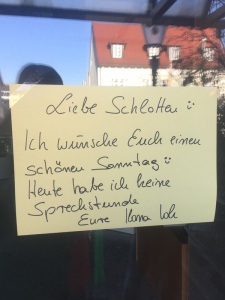 Liebe Schlotten ü
Ich wünsche Euch einen
schönen Sonntag ü
Heute habe ich keine
Sprechstunde
Eure